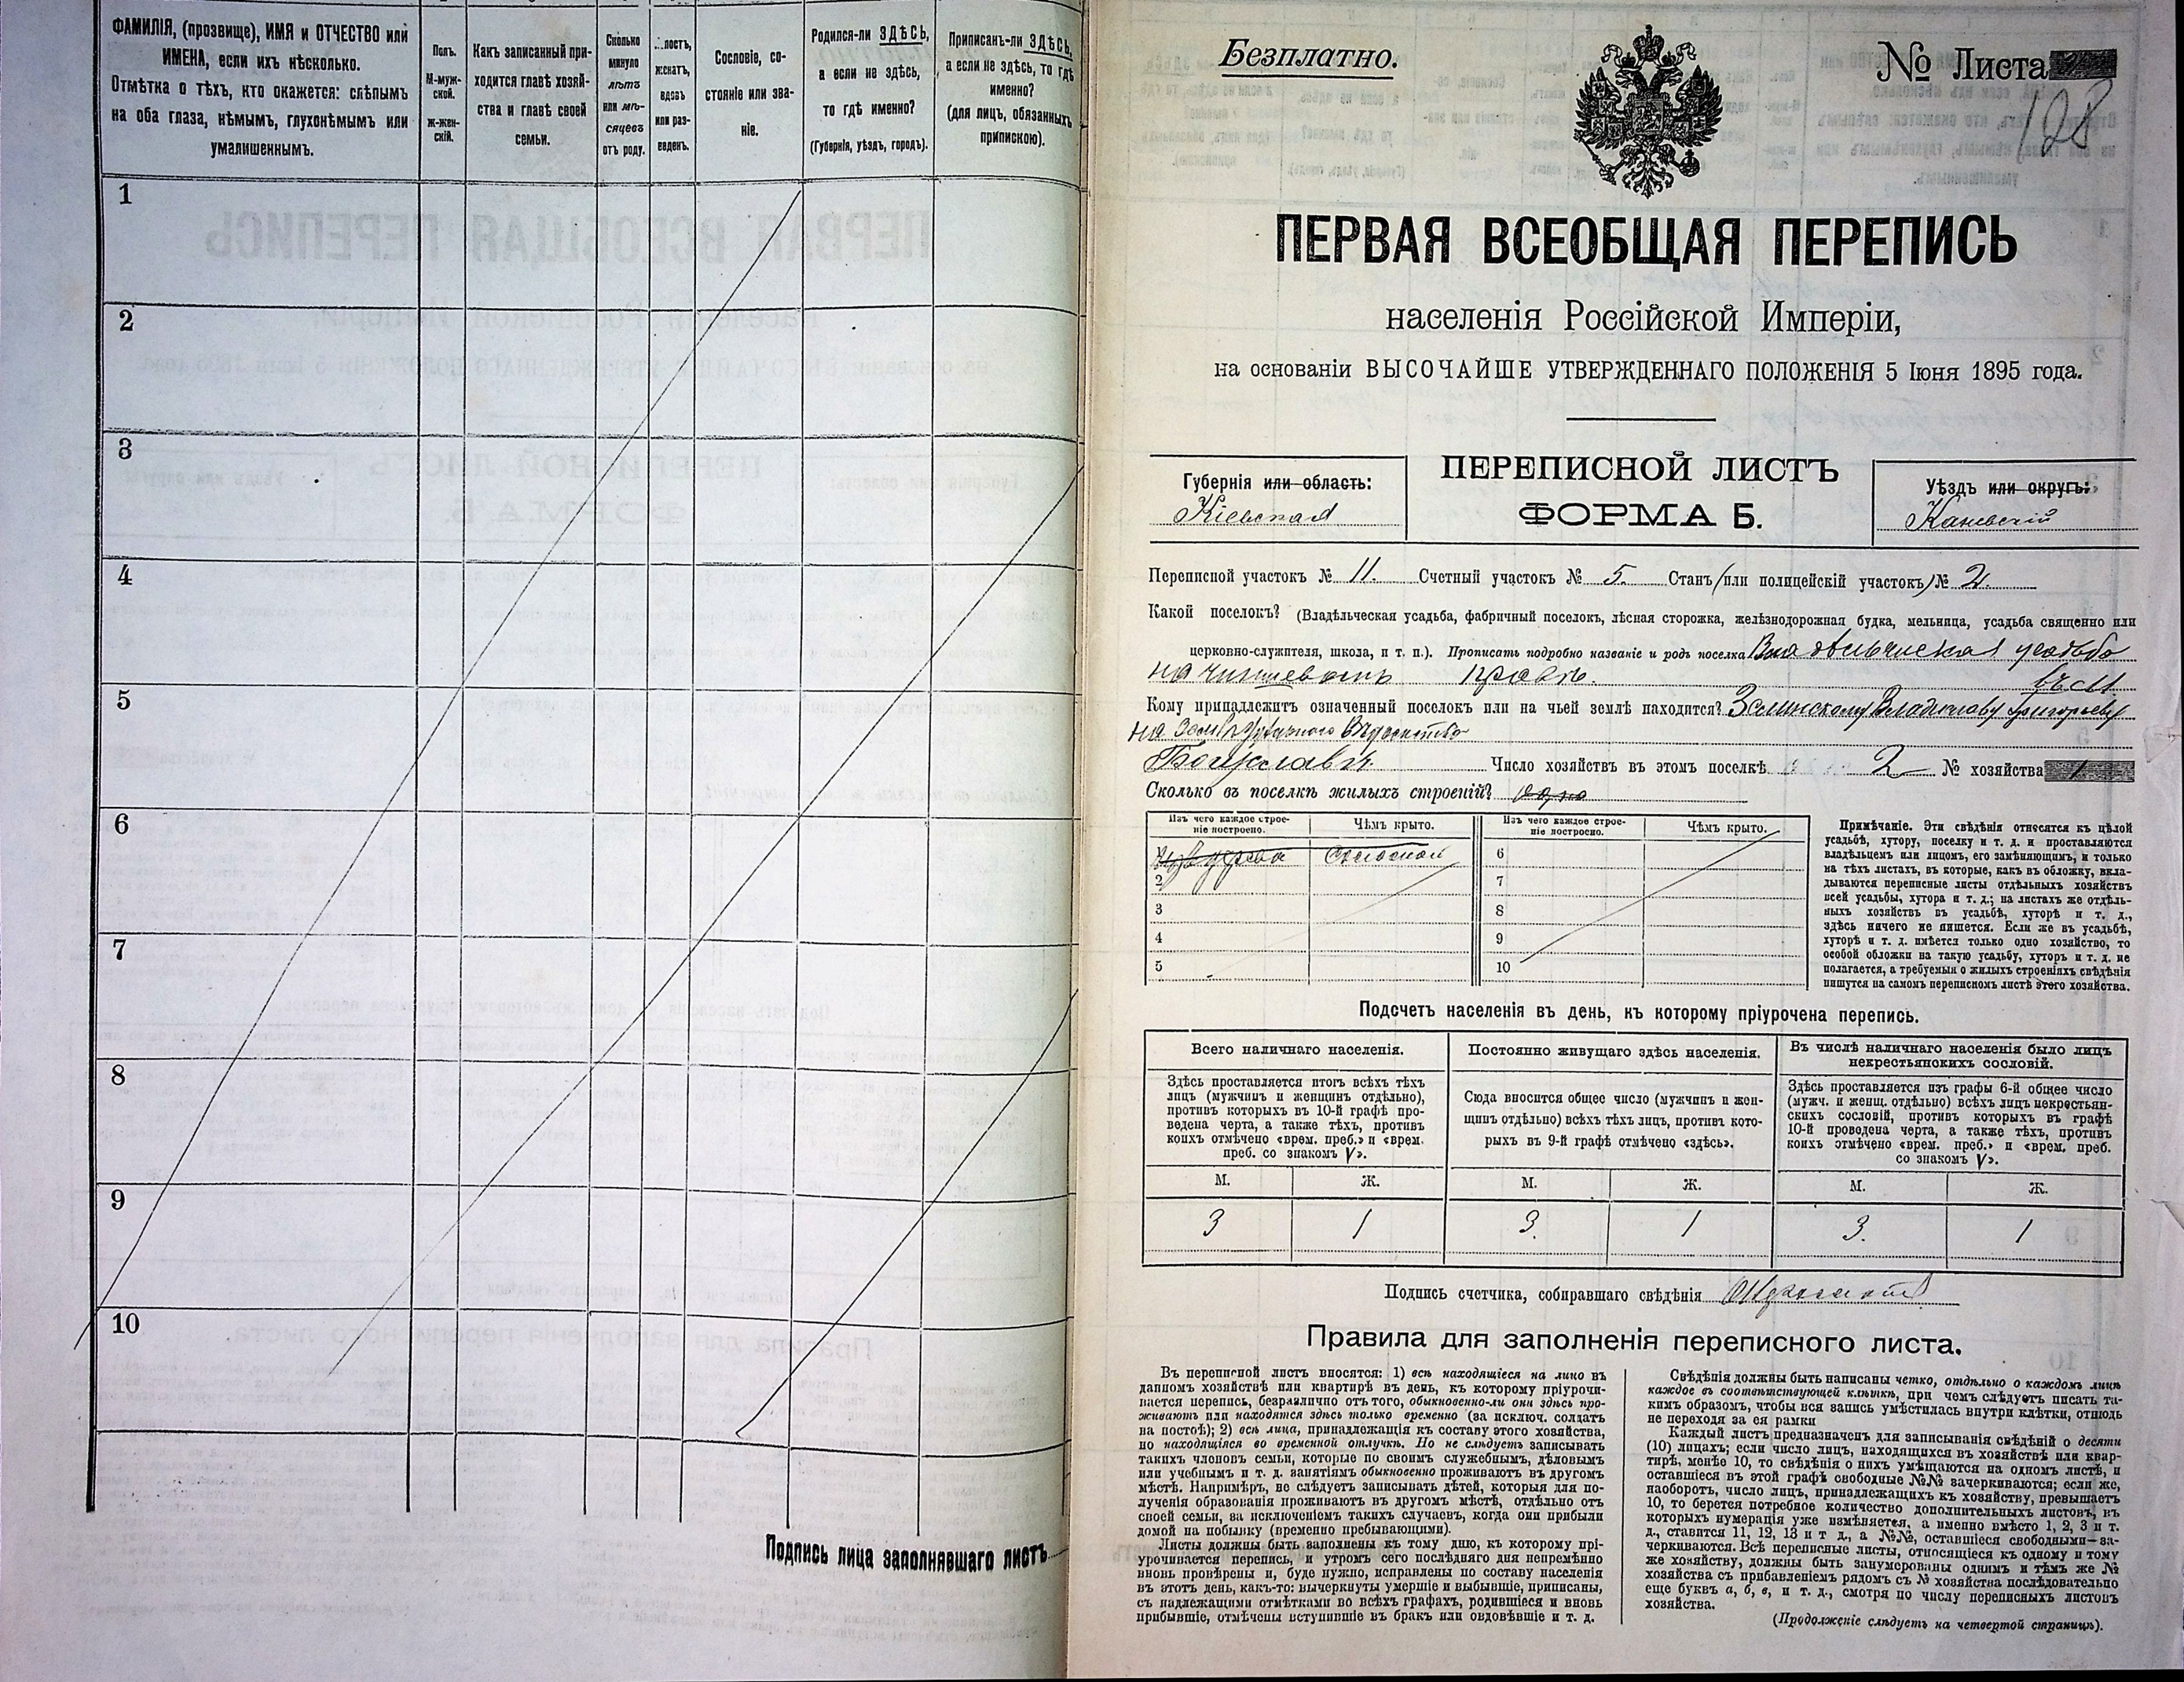 ФАМИЛІЯ, (прозвище), ИМЯ и ОТЧЕСТВО или
ИМЕНА, если ихъ нѣсколько.
Отмѣтка о тѣхъ, кто окажется: слѣпымъ
на оба глаза, нѣмымъ, глухонѣмымъ или
умалишеннымъ.
Полъ.
М-муж-
ской.
ж-жен-
скій.
Какъ записанный при-
ходится главѣ хозяй-
ства и главѣ своей
семьи.
Сколько
минуло
лѣтъ
или мѣ-
сяцевъ
отъ роду.
женатъ,
вдовъ
или раз-
веденъ.
Сословіе, со-
стояніе или зва-
ніе.
Родился-ли ЗДѢСЬ,
а если не здѣсь,
то гдѣ именно?
(Губернія, уѣздъ, городъ).
Приписанъ-ли ЗДѢСЬ,
а если не здѣсь, то гдѣ
именно?
(для лицъ, обязанныхъ
припискою).
1
2
3
4
5
6
7
8
9
10
Подпись лица заполнявшаго листъ
Безплатно.
№ Листа
128
ПЕРВАЯ ВСЕОБЩАЯ ПЕРЕПИСЬ
населенія Россійской Имперіи,
на основаніи ВЫСОЧАЙШЕ УТВЕРЖДЕННАГО ПОЛОЖЕНІЯ 5 Іюня 1895 года.
Губернія или область:
Кіевская
ПЕРЕПИСНОЙ ЛИСТЪ
ФОРМА Б.
Уѣздъ или округъ:
Каневскій
Переписной участокъ № 11. Счетный участокъ № 5. Станъ (или полицейскій участокъ) № 2.
Какой поселокъ? (Владѣльческая усадьба, фабричный поселокъ, лѣсная сторожка, желѣзнодорожная будка, мельница, усадьба священно или
церковно-служителя, школа, и т. п.). Прописать подробно названіе и родъ поселка Владѣльческая усадьба
на чиншевомъ правѣ. въ м.
Кому принадлежитъ означенный поселокъ или на чьей землѣ находится? Зелинскому Владиславу Григорьеву
на земл Удѣльнаго Вѣдомства
Богуславѣ. Число хозяйствъ въ этомъ поселкѣ 2 № хозяйства 1
Сколько въ поселкѣ жилыхъ строеній? одно
Изъ чего каждое строе-
ніе построено.
Чѣмъ крыто.
Изъ чего каждое строе-
ніе построено.
Чѣмъ крыто.
1 Изъ дерева Соломой
2
3
4
5
6
7
8
9
10
Примѣчаніе. Эти свѣдѣнія относятся къ цѣлой
усадьбѣ, хутору, поселку и т. д. и проставляются
владѣльцемъ или лицомъ, его замѣняющимъ, и только
на тѣхъ листахъ, въ которые, какъ въ обложку, вкла-
дываются переписные листы отдѣльныхъ хозяйствъ
всей усадьбы, хутора и т. д.; на листахъ же отдѣль-
ныхъ хозяйствъ въ усадьбѣ, хуторѣ и т. д.,
здѣсь ничего не пишется. Если же въ усадьбѣ,
хуторѣ и т. д. имѣется только одно хозяйство, то
особой обложки на такую усадьбу, хуторъ и т. д. не
полагается, а требуемыя о жилыхъ строеніяхъ свѣдѣнія
пишутся на самомъ переписномъ листѣ этого хозяйства.
Подсчетъ населенія въ день, къ которому пріурочена перепись.
Всего наличнаго населенія.
Здѣсь проставляется итогъ всѣхъ тѣхъ
лицъ (мужчинъ и женщинъ отдѣльно),
противъ которыхъ въ 10-й графѣ про-
ведена черта, а также тѣхъ, противъ
коихъ отмѣчено «врем. преб.» и «врем.
преб. со знакомъ V».
Постоянно живущаго здѣсь населенія.
Сюда вносится общее число (мужчинъ и жен-
щинъ отдѣльно) всѣхъ тѣхъ лицъ, противъ кото-
рыхъ въ 9-й графѣ отмѣчено «здѣсь».
Въ числѣ наличнаго населенія было лицъ
некрестьянскихъ сословій.
Здѣсь проставляется изъ графы 6-й общее число
(мужч. и женщ. отдѣльно) всѣхъ лицъ некрестьян-
скихъ сословій, противъ которыхъ въ графѣ
10-й проведена черта, а также тѣхъ, противъ
коихъ отмѣчено «врем. преб.» и «врем. преб.
со знакомъ V».
М. Ж. М. Ж. М. Ж.
3 1 3. 1 3. 1
Подпись счетчика, собиравшаго свѣдѣнія
Правила для заполненія переписного листа.
Въ переписной листъ вносятся: 1) всѣ находящіеся на лицо въ
данномъ хозяйствѣ или квартирѣ въ день, къ которому пріурочи-
вается перепись, безразлично отъ того, обыкновенно-ли они здѣсь про-
живаютъ или находятся здѣсь только временно (за исключ. солдатъ
на постоѣ); 2) всѣ лица, принадлежащія къ составу этого хозяйства,
но находящіяся во временной отлучкѣ. Но не слѣдуетъ записывать
такихъ членовъ семьи, которые по своимъ служебнымъ, дѣловымъ
или учебнымъ и т. д. занятіямъ обыкновенно проживаютъ въ другомъ
мѣстѣ. Напримѣръ, не слѣдуетъ записывать дѣтей, которыя для по-
лученія образованія проживаютъ въ другомъ мѣстѣ, отдѣльно отъ
своей семьи, за исключеніемъ такихъ случаевъ, когда они прибыли
домой на побывку (временно пребывающими).
Листы должны быть заполнены къ тому дню, къ которому прі-
урочивается перепись, и утромъ сего послѣдняго дня непремѣнно
вновь провѣрены и, буде нужно, исправлены по составу населенія
въ этотъ день, какъ-то: вычеркнуты умершіе и выбывшіе, приписаны,
съ надлежащими отмѣтками во всѣхъ графахъ, родившіеся и вновь
прибывшіе, отмѣчены вступившіе въ бракъ или овдовѣвшіе и т. д.
Свѣдѣнія должны быть написаны четко, отдѣльно о каждомъ лицѣ
каждое въ соотвѣтствующей клѣткѣ, при чемъ слѣдуетъ писать та-
кимъ образомъ, чтобы вся запись умѣстилась внутри клѣтки, отнюдь
не переходя за ея рамки
Каждый листъ предназначенъ для записыванія свѣдѣній о десяти
(10) лицахъ; если число лицъ, находящихся въ хозяйствѣ или квар-
тирѣ, менѣе 10, то свѣдѣнія о нихъ умѣщаются на одномъ листѣ, и
оставшіеся въ этой графѣ свободные №№ зачеркиваются; если же,
наоборотъ, число лицъ, принадлежащихъ къ хозяйству, превышаетъ
10, то берется потребное количество дополнительныхъ листовъ, въ
которыхъ нумерація уже измѣняется, а именно вмѣсто 1, 2, 3 и т.
д., ставятся 11, 12, 13 и т д., а №№, оставшіеся свободными—за-
черкиваются. Всѣ переписные листы, относящіеся къ одному и тому
же хозяйству, должны быть занумерованы однимъ и тѣмъ же №
хозяйства съ прибавленіемъ рядомъ съ № хозяйства послѣдовательно
еще буквъ а, б, в, и т. д., смотря по числу переписныхъ листовъ
хозяйства.
(Продолженіе слѣдуетъ на четвертой страницѣ).